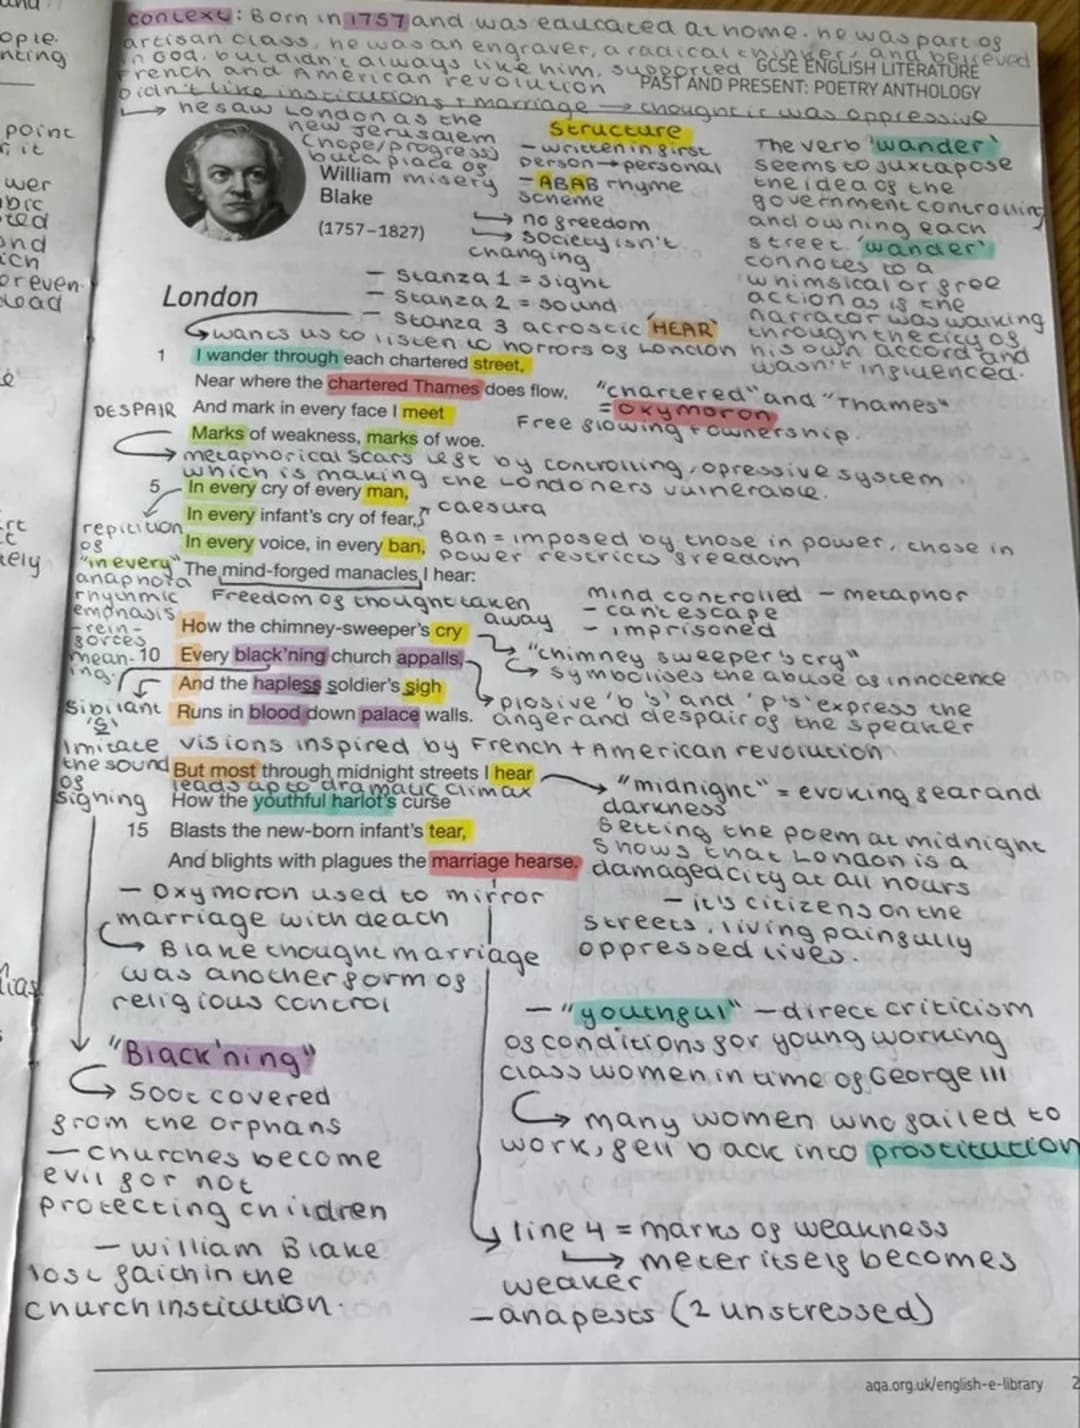 context: Born in 1757 and was educated at home. he was part of
artisan class, he was an engraver, a radical thinker, and believed
in God, but didn't always like him. supported
GCSE ENGLISH LITERATURE
French and American revolution
PAST AND PRESENT: POETRY ANTHOLOGY
Didn't like institutions + marriage → thought it was oppressive
↳ he saw London as the
new Jerusalem
(hope/progress)
but a place of
misery
William
Blake
(1757–1827)
Structure
– written in first
person → personal
– ABAB rhyme
scheme
↳ no freedom
↳ society isn't
changing
– Stanza 1 = sight
– Stanza 2 = sound
– Stanza 3 acrostic 'HEAR'
↳ wants us to listen to horrors of London
The verb 'wander'
seems to juxtapose
the idea of the
government controlling
and owning each
street. 'wander'
connotes to a
whimsical or free
action as if the
narrator was walking
through the city of
his own accord and
wasn't influenced.
London
1 I wander through each chartered street,
Near where the chartered Thames does flow,
"chartered" and "Thames"
= oxymoron
Free flowing + ownership.
DESPAIR And mark in every face I meet
Marks of weakness, marks of woe.
→ metaphorical scars left by controlling, opressive system
which is making the Londoners vulnerable.
5 In every cry of every man,
In every infant's cry of fear,
caesura
In every voice, in every ban,
Ban = imposed by those in power, those in
power restricts freedom
repitition
of
"in every"
anaphora
rhythmic
emphasis
– rein-
forces
mean-
ing.
The mind-forged manacles I hear:
Freedom of thought taken
away
mind controlled – metaphor
– can't escape
– imprisoned
How the chimney-sweeper's cry
"chimney sweeper's cry"
↳ symbolises the abuse of innocence
10 Every black'ning church appalls,
And the hapless soldier's sigh
plosive 'b's' and 'p's' express the
anger and despair of the speaker
Runs in blood down palace walls.
sibilant
's'
imitate
the sound
of
signing
visions inspired by French + American revolution
But most through midnight streets I hear
leads up to dramatic climax
How the youthful harlot's curse
15 Blasts the new-born infant's tear,
And blights with plagues the marriage hearse.
"midnight" = evoking fear and
darkness
Setting the poem at midnight
shows that London is a
damaged city at all hours
– it's citizens on the
streets, living painfully
oppressed lives.
– Oxymoron used to mirror
marriage with death
↳ Blake thought marriage
was another form of
religious control
"Black'ning"
↳ Soot covered
from the orphans
– churches become
evil for not
protecting children
– William Blake
lost faith in the
church institution.
– "youthful" – direct criticism
of conditions for young working
class women in time of George III
↳ many women who failed to
work, fell back into prostitution
line 4 = marks of weakness
→ meter itself becomes
weaker
– anapests (2 unstressed)
aqa.org.uk/english-e-library 2
ople
nting
point
wer
ted
ond
ich
or even
dead
tely
lias